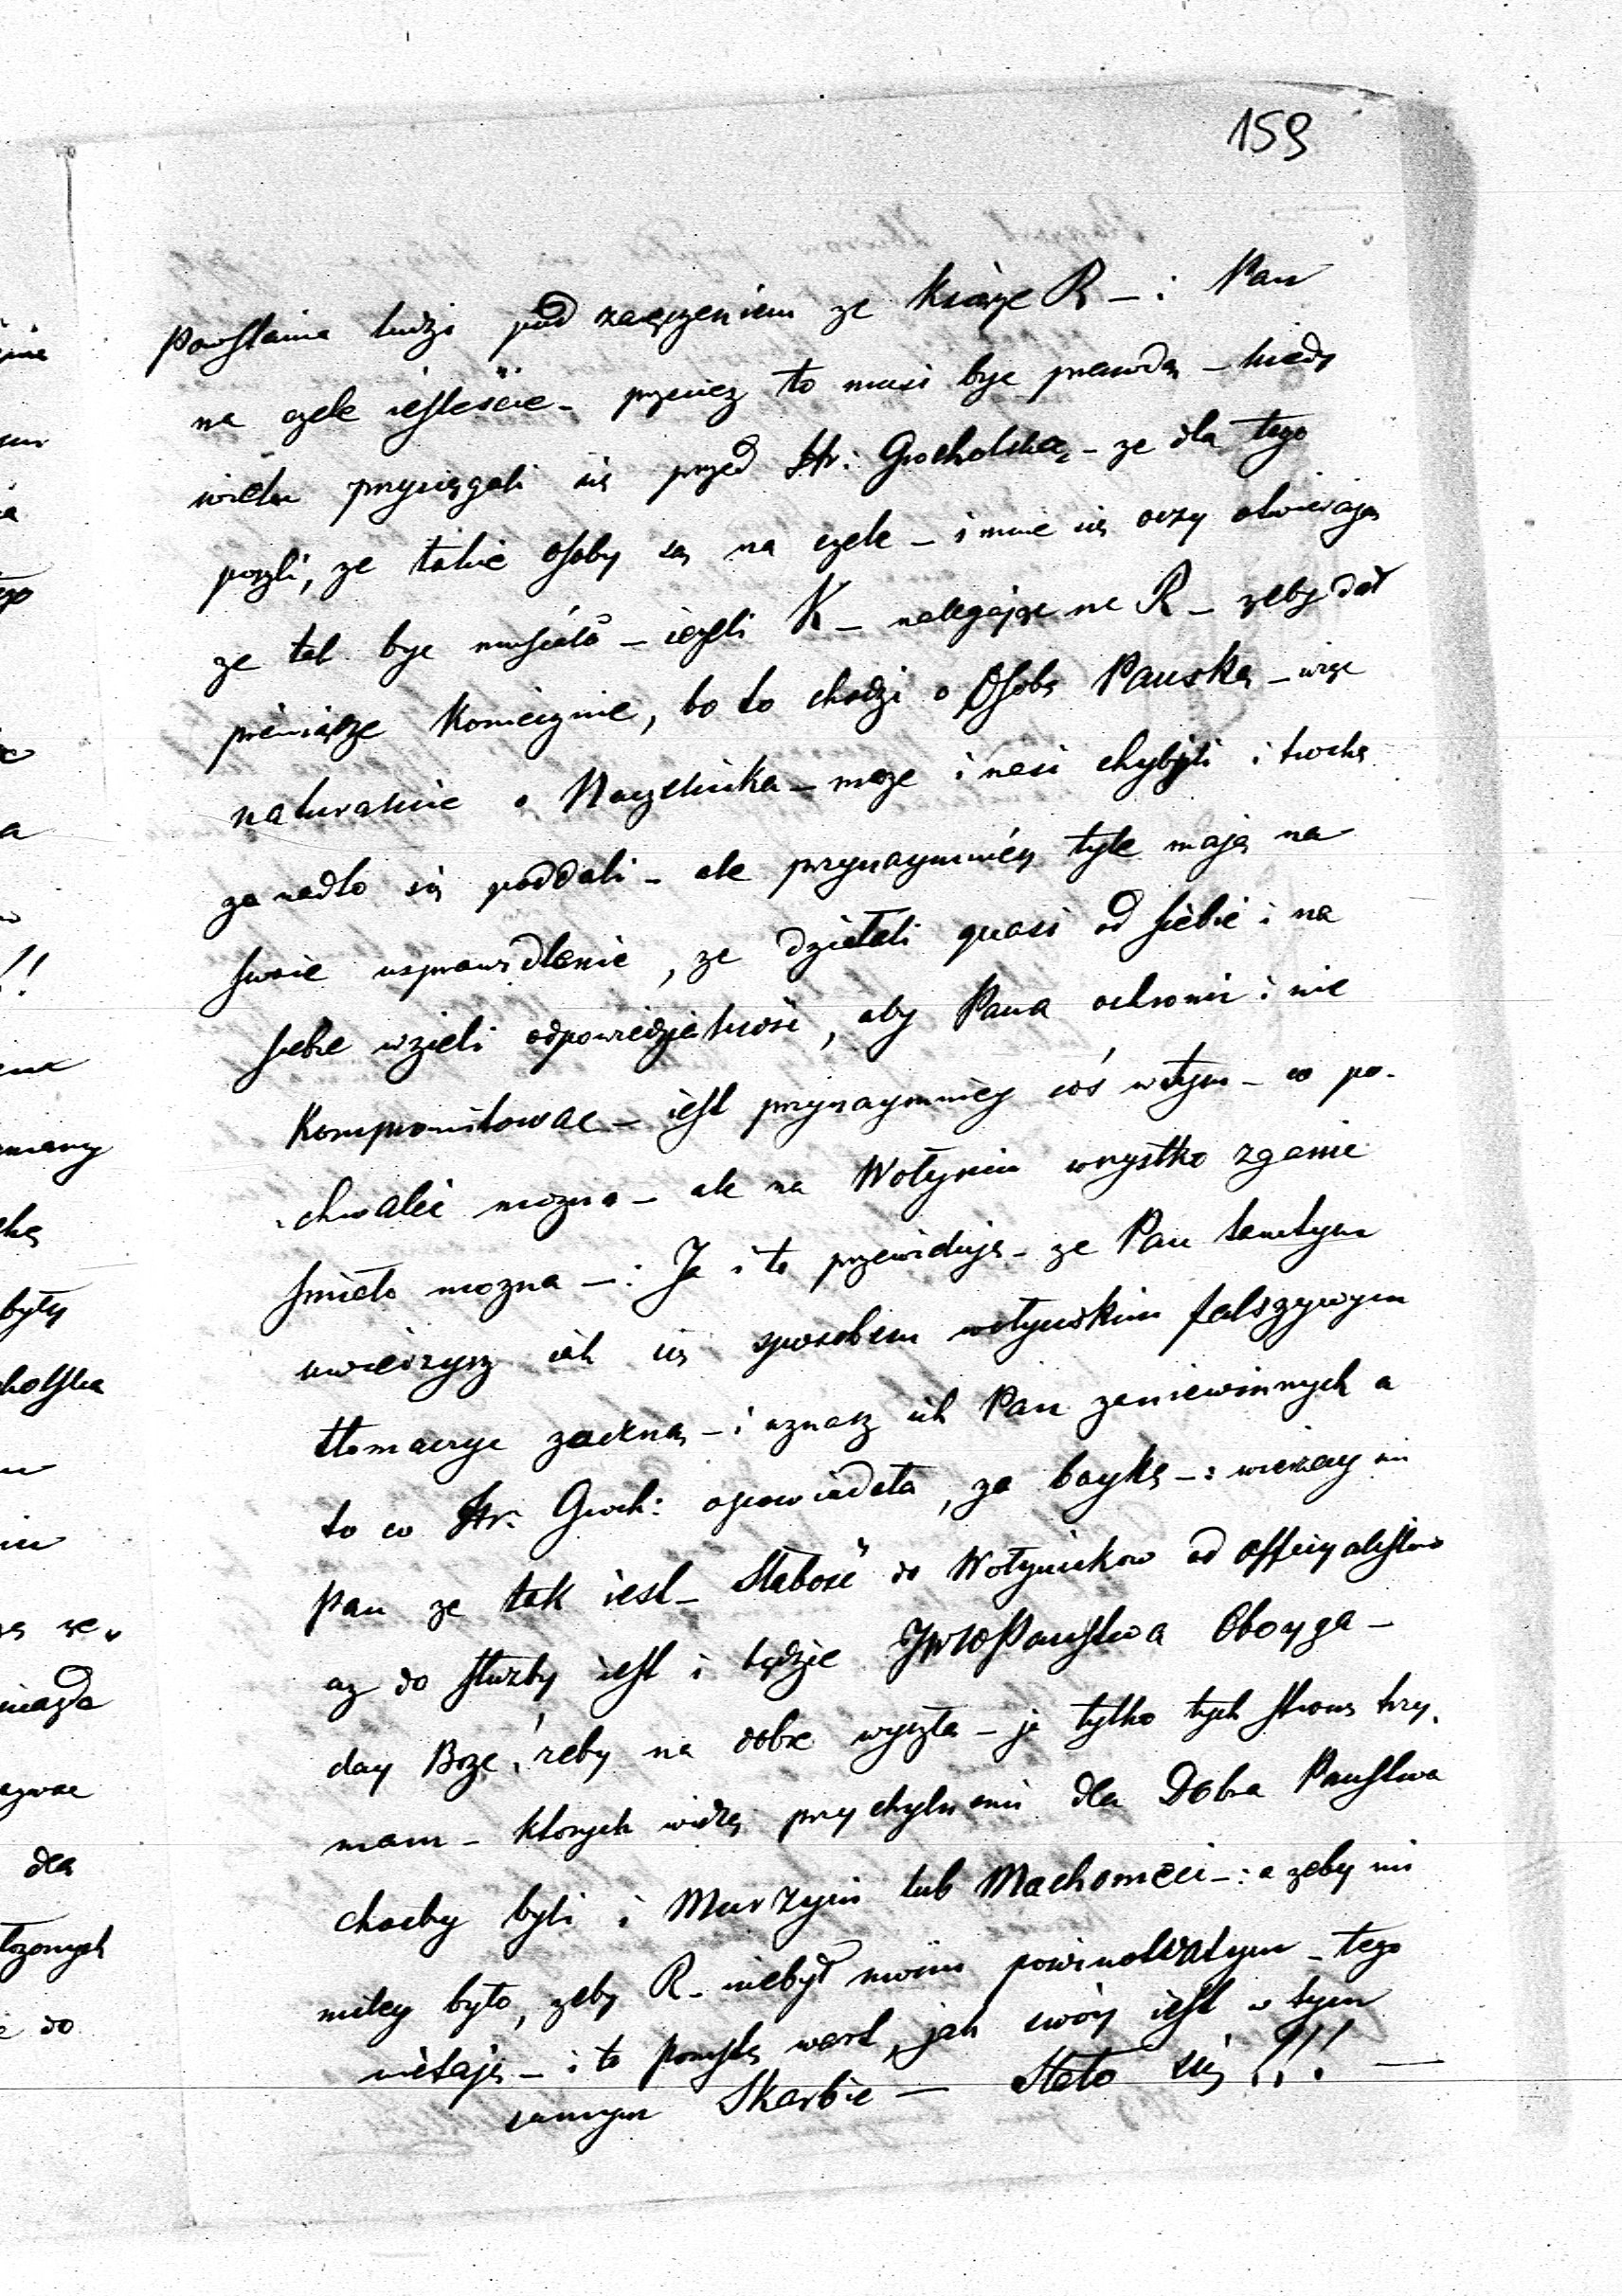 159
Powstania ludzi pod zaręczeniem ze Książe R – i Pan
na czele iesteście – przeciez to musi byc prawdą – kiedy
wielu przysięgali się przed Hr: Grocholską – ze dla tego
poszli, ze takie osoby są na czele – i mnie się oczy otwierają
ze tak byc musiało – iezeli K – nalegając na R – zeby dał
pieniądze koniecznie, bo to chodzi o Osobę Panską – więc
naturalnie o Naczelnika – moze i nasi chybili i trochę
za nadto się poddali – ale przynaymniey tyle mają na
swoie usprawidlenie, ze działali quasi od siebie i na
siebie wzieli odpowiedzialność, aby Pana ochronić i nie
kompromitowac – iest przynaymniey coś w tym – co po-
chwalić mozna – ale na Wołyniu wszystko zganić
smiało mozna – : Ja i to przewiduję – ze Pan tamtym
uwierzysz iak się sposobem wołynskim falszywym
tłomaczyc zaczną – i uznasz ich Pan za niewinnych a
to co Hr: Groch: opowiadała, za baykę – : wierzay mi
Pan ze tak iest – Słabość do Wołyniakow od officyalistow
az do służby iest i będzie JWWPaństwa Oboyga –
day Boze, żeby na dobre wyszła – ja tylko tych strony trzy-
mam – ktorych widzę przychylnemi dla Dobra Panstwa
chocby byli i Murzyni lub Machomeci – : a zeby mi
miley było, zeby R – niebył moim powinowatym – tego
nietaję – i to pomstę wart, jak swóy iest w tym
samym Skarbie – Stało się !!! –